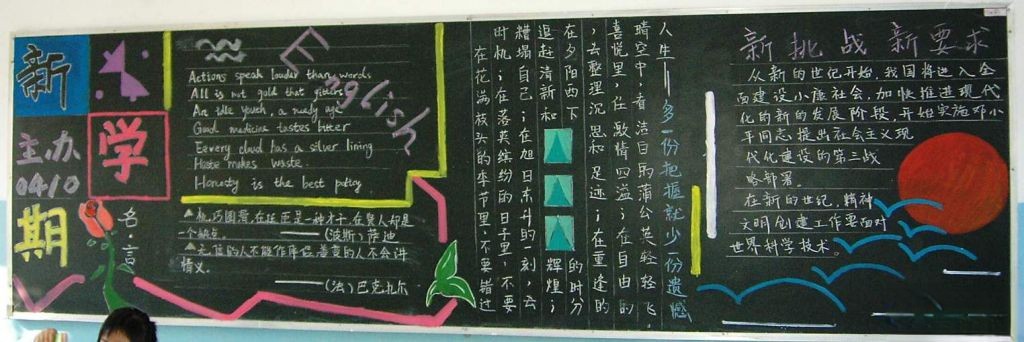 新
学
期
主.办
0410
English
Actions speak louder than words
All is not gold that gitters
An idle youth, a needy age
Good medicine tastes bitter
Eevery cloud has a silver lining
Haste makes waste
Honesty is the best policy
名言
一个缺点。
(波斯)萨迪
情义。
(法)巴克扎尔
人生——多一份把握就少一份遗憾
晴空中,看洁白的蒲公英轻轻飞,
喜悦里,任激情四溢;在自由的
,去整理沉思和足迹;在重逢的
在夕阳西下的时分
追赶清新和辉煌;
糟塌自己;在旭日东升的一刻,去
时机;在落英缤纷的日子里,不要
在花满枝头的季节里,不要错过
新挑战新要求
从新的世纪开始,我国将进入全
面建设小康社会,加快推进现代
化的新的发展阶段,开始实施邓小
平同志提出社会主义现
代化建设的第三战
略部署。
在新的世纪,精神
文明创建工作要面对
世界科学技术。